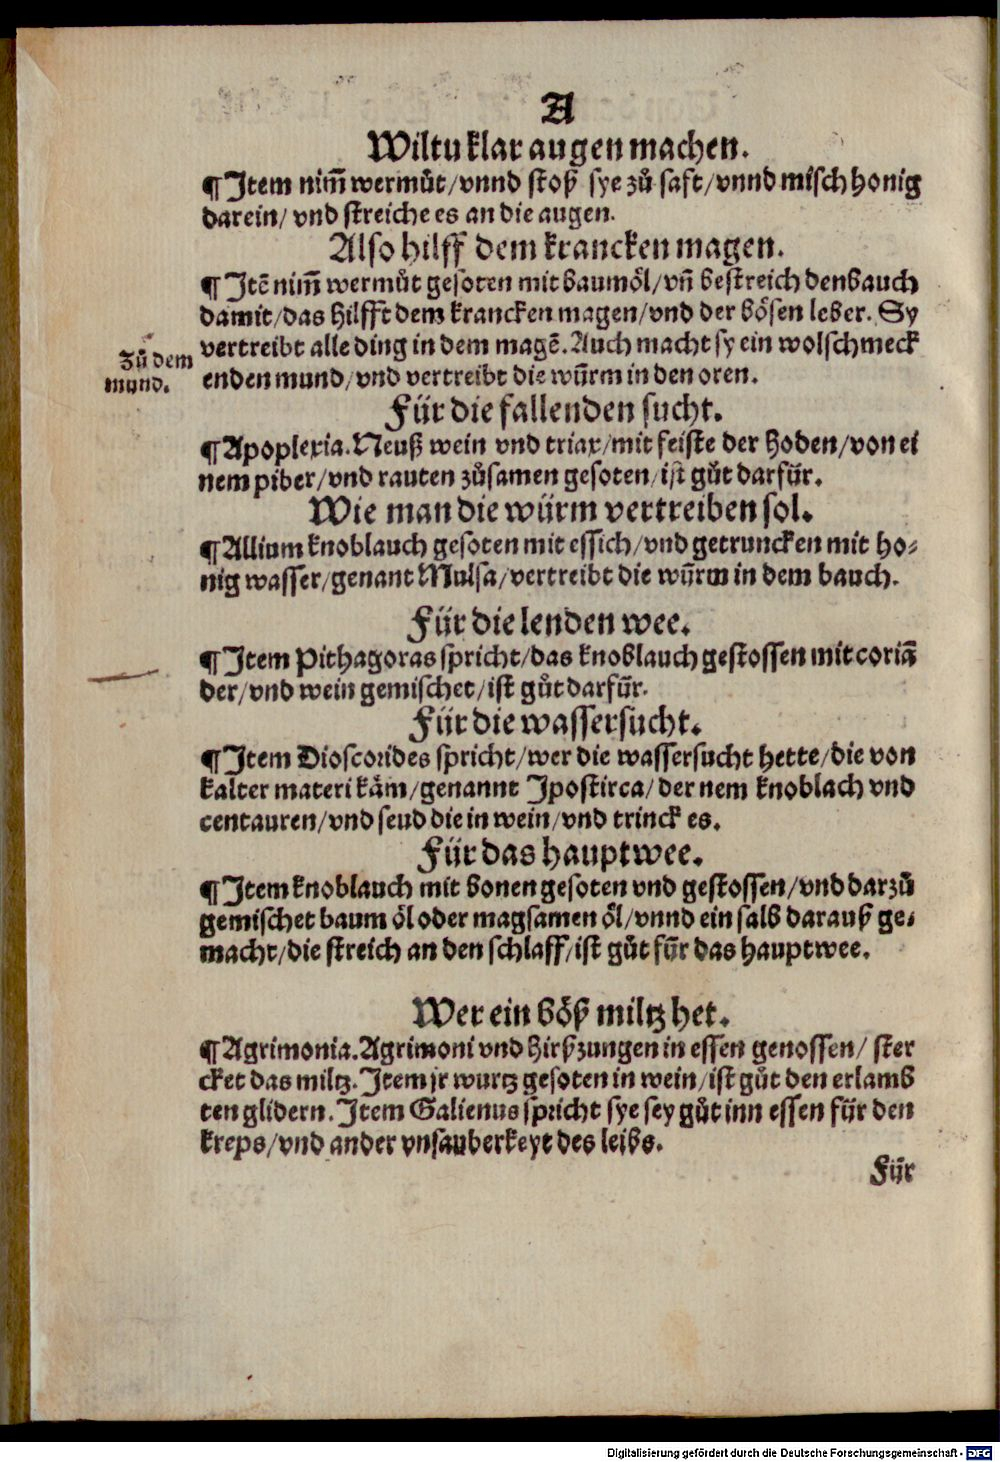 A
Wiltu klar augen machen.
¶ Item nim̃ wermůt/vnnd stoß sye zů saft/vnnd misch honig
darein/ vnd streiche es an die augen.
Also hilff dem krancken magen.
¶ Itẽ nim̃ wermůt gesoten mit baumöl/vñ bestreich den bauch
damit/das hilfft dem krancken magen/vnd der bösen leber. Sy
vertreibt alle ding in dem magẽ. Auch macht sy ein wolschmeck
Zů dem
mund.
enden mund/vnd vertreibt die würm in den oren.
Für die fallenden sucht.
¶ Apoplexia. Neuß wein vnd triax/mit feiste der hoden/von ei
nem piber/vnd rauten zůsamen gesoten/ist gůt darfür.
Wie man die würm vertreiben sol.
¶ Allium knoblauch gesoten mit essich/vnd getruncken mit ho⸗
nig wasser/genant Mulsa/vertreibt die würm in dem bauch.
Für die lenden wee.
¶ Item Pithagoras spricht/das knoblauch gestossen mit coriã
der/vnd wein gemischet/ist gůt darfür.
Für die wassersucht.
¶ Item Dioscorides spricht/wer die wassersucht hette/die von
kalter materi käm/genannt Ipostirca/ der nem knoblach vnd
centauren/vnd seud die in wein/vnd trinck es.
Für das hauptwee.
¶ Item knoblauch mit bonen gesoten vnd gestossen/vnd darzů
gemischet baum öl oder magsamen öl/vnnd ein salb darauß ge⸗
macht/die streich an den schlaff/ist gůt für das hauptwee.
Wer ein böß miltz het.
¶ Agrimonia. Agrimoni vnd hirßzungen in essen genossen/ ster
cket das miltz. Item jr wurtz gesoten in wein/ist gůt den erlamb
ten glidern. Item Galienus spricht sye sey gůt inn essen für den
kreps/vnd ander vnsauberkeyt des leibs.
Für
Digitalisierung gefördert durch die Deutsche Forschungsgemeinschaft - DFG